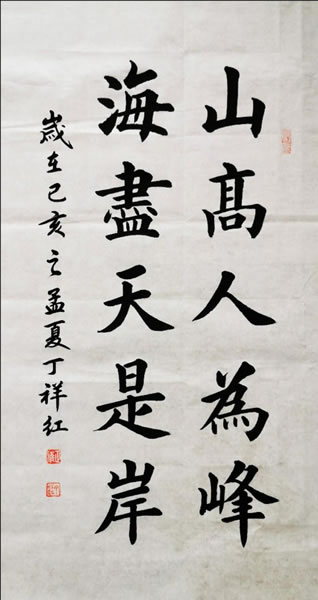 山高人為峰
海盡天是岸
歲在己亥之孟夏丁祥红